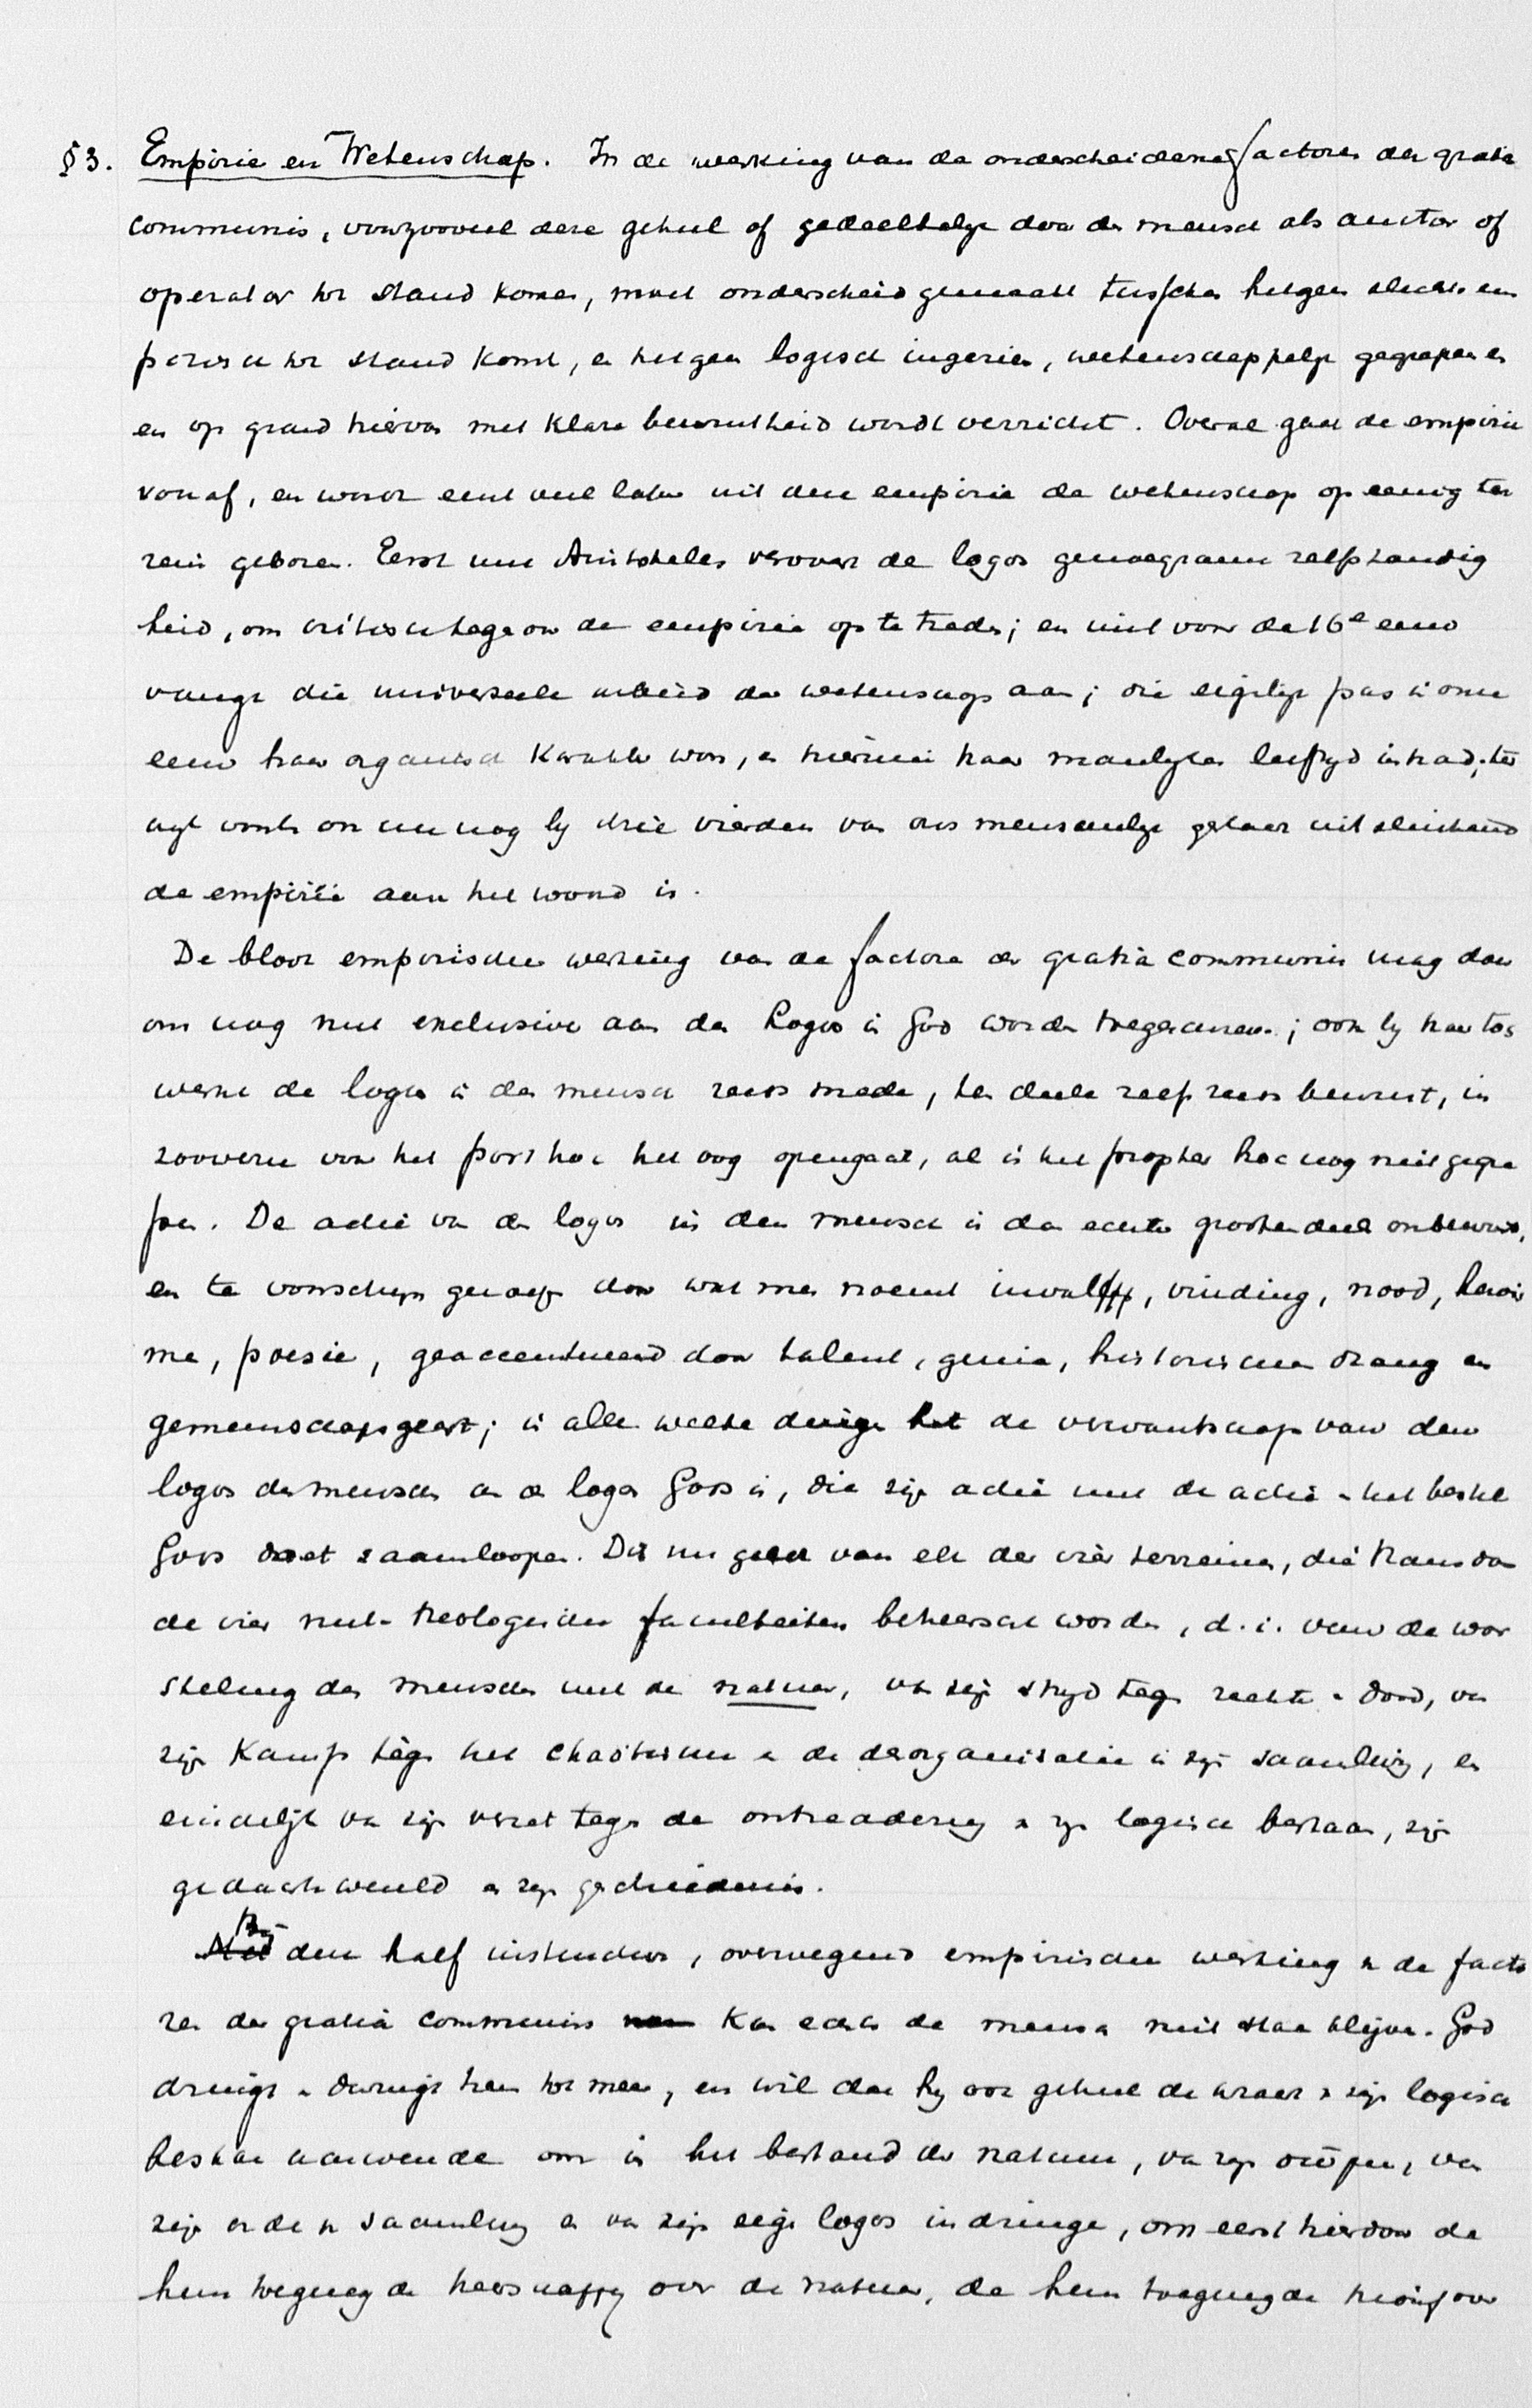 §3. Empirie en Wetenschap. In de werking van de onderscheidene factoren der gratia
communis, voorzooveel deze geheel of gedeeltelijk door den mensch als auctor of
operator tot stand komen, moet onderscheid gemaakt tusschen hetgeen slechts em
pirisch tot stand komt, en hetgeen logisch ingezien, wetenschappelijk gegrepen en
en op grond hiervan met klare bewustheid wordt verricht. Overal gaat de empirie
vooraf, en wordt eerst veel later uit deze empirie de wetenschap op eenig ter
rein geboren. Eerst met Aristoteles verovert de logos genoegzame zelfstandig
heid, om critisch tegenover de empirie op te treden; en niet voor de 16e eeuw
vangt die universeele arbeid der wetenschap aan; die eigenlijk pas in onze
eeuw haar organisch karakter won, en hiermee haar manlijken leeftijd intrad; ter
wijl omtrent nu nog bij drie vierden van ons menschelijk geslacht uitsluitend
de empirie aan het woord is.
De bloot empirische werking van de factoren der gratia communis mag daar
om nog niet exclusive aan den Logos in God worden toegeschreven; ook bij haar toch
werkt de logos in den mensch reeds mede, ten deele zelfs reeds bewust, in
zooverre voor het post hoc het oog opengaat, al is het propter hoc nog niet gegre
pen. De actie van den logos in den mensch is dan echter grootendeels onbewust,
en te voorschijn geroepen door wat men noemt inval, vinding, nood, herois
me, poesie, geaccentueerd door talent, genie, historischen drang en
gemeenschapsgeest; in alle welke dingen het de verwantschap van den
logos des menschen aan den logos Gods is, die zijn actie met de actie en het bestel
Gods doet saamloopen. Dit nu geldt van elk der vier terreinen, die thans door
de vier niet-theologische faculteiten beheerscht worden, d. i. van de wor
steling des menschen met de natuur, van zijn strijd tegen ziekte en dood, van
zijn kamp tegen het chaotische en de desorganisatie in zijn saamleving, en
eindelijk van zijn verzet tegen de ontreddering in zijn logisch bestaan, zijn
gedachtwereld en zijn geschiedenis.
Bij deze half instinctieve, overwegend empirische werking van de facto
ren der gratia communis kan echter de mensch niet staan blijven. God
dringt en dwingt hem tot meer, en wil dat hij ook geheel de kracht van zijn logisch
bestaan aanwende om in het bestand der natuur, van zijn, van
zijn orde en saamleving en van zijn eigen logos in te dringen, om eerst hierdoor de
hem toegezegde heerschappij over de natuur, de hem toegezegde triomf over